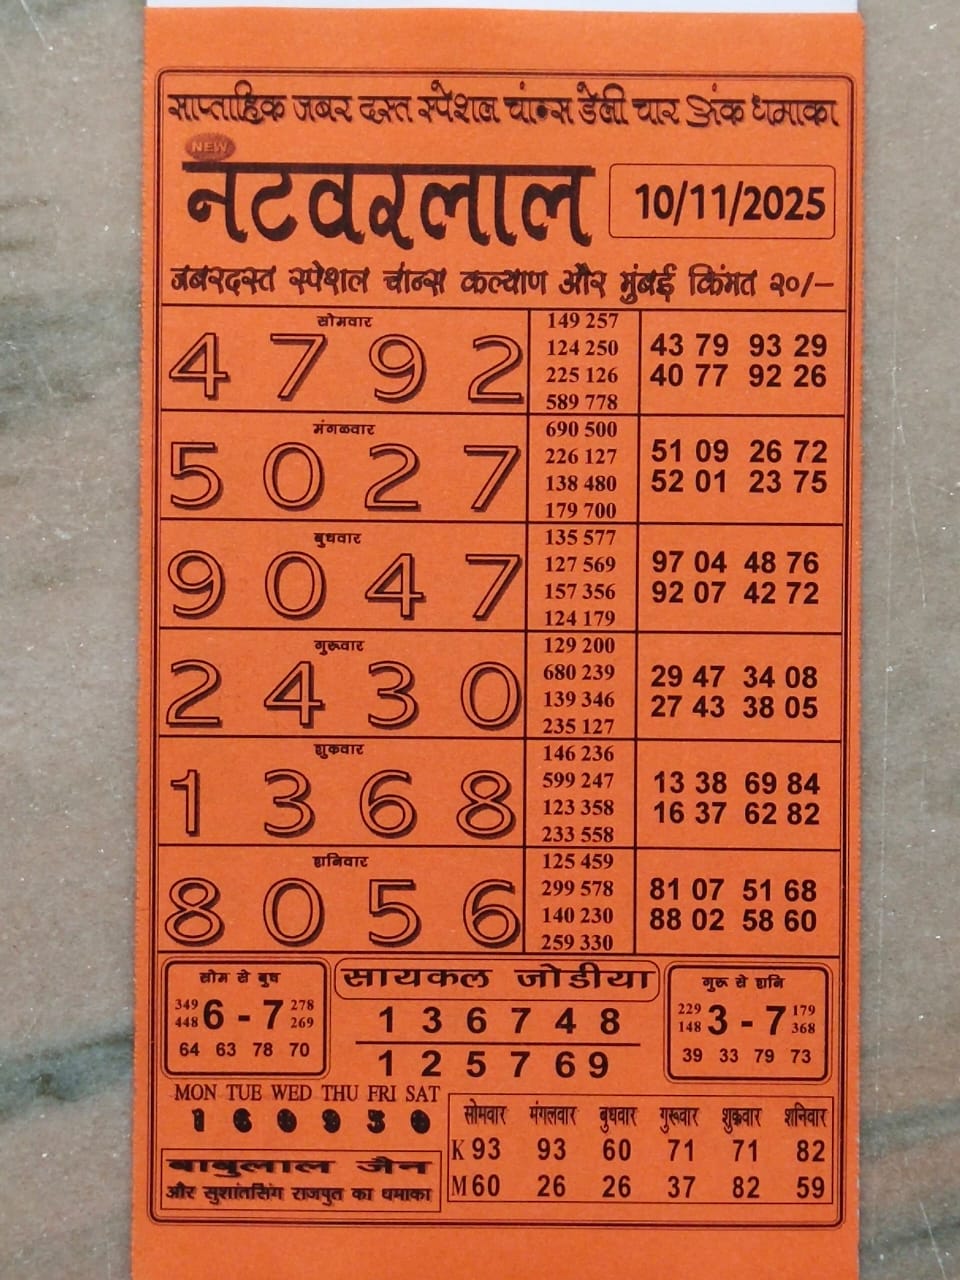 साप्ताहिक जबर दस्त स्पेशल चांन्स डेली चार अंक धमाका
NEW
नटवरलाल 10/11/2025
जबरदस्त स्पेशल चांन्स कल्याण और मुंबई किंमत २०/-
सोमवार
4 7 9 2
149 257
124 250
225 126
589 778
43 79 93 29
40 77 92 26
मंगळवार
5 0 2 7
690 500
226 127
138 480
179 700
51 09 26 72
52 01 23 75
बुधवार
9 0 4 7
135 577
127 569
157 356
124 179
97 04 48 76
92 07 42 72
गुरूवार
2 4 3 0
129 200
680 239
139 346
235 127
29 47 34 08
27 43 38 05
शुक्रवार
1 3 6 8
146 236
599 247
123 358
233 558
13 38 69 84
16 37 62 82
शनिवार
8 0 5 6
125 459
299 578
140 230
259 330
81 07 51 68
88 02 58 60
सोम से बुध
349 448 6 - 7 278 269
64 63 78 70
सायकल जोडीया
1 3 6 7 4 8
1 2 5 7 6 9
गुरू से शनि
229 148 3 - 7 179 368
39 33 79 73
MON TUE WED THU FRI SAT
बाबुलाल जैन
और सुशांतसिंग राजपुत का धमाका
सोमवार मंगलवार बुधवार गुरूवार शुक्रवार शनिवार
K 93 93 60 71 71 82
M 60 26 26 37 82 59